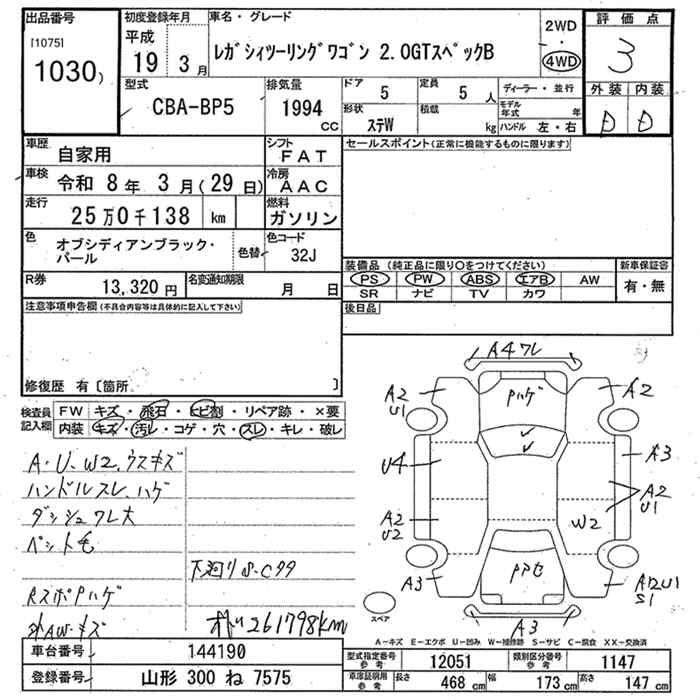 出品番号
[1075]
1030)
初度登録年月
平成
19 3月
車名・グレード
レガシィツーリングワゴン 2.0GTスペックB
2WD
・
4WD
評価点
3
外装 内装
D D
型式
CBA-BP5
排気量
1994
cc
ドア
5
形状
ステW
定員
5 人
積載
kg
ディーラー・並行
モデル
年式 年
ハンドル 左・右
車歴
自家用
シフト
FAT
車検
令和 8年 3月(29日)
冷房
AAC
走行
25万0千138 km
燃料
ガソリン
色
オブシディアンブラック・
パール
色替
色コード
32J
R券
13,320円
名変通知期限
月 日
セールスポイント(正常に機能するものに限ります)
装備品 (純正品に限り○をつけてください)
PS PW ABS エアB AW
SR ナビ TV カワ
新車保証書
有・無
後日品
注意事項申告欄(不具合内容等は具体的に記入して下さい)
修復歴 有〔箇所 〕
検査員
記入欄
FW キズ・飛石・ヒビ割・リペア跡・×要
内装 キズ・汚レ・コゲ・穴・スレ・キレ・破レ
A・U・W2、ウスキズ
ハンドルスレ、ハゲ
ダッシュワレ大
ペット毛
下廻りS・C99
RスポPハゲ
外AWキズ
オド261798km
A4ワレ
A2
U1
Pハゲ
A2
U4
A3
A2
U1
A2
U2
W2
A3
PPセ
A12U1
S1
A3
スペア
A-キズ E-エクボ U-凹み W-補修跡 S-サビ C-腐食 XX-交換済
車台番号
144190
登録番号
山形 300 ね 7575
型式指定番号
参考
12051
類別区分番号
参考
1147
車庫証明用
参考
長さ
468 cm
幅
173 cm
高さ
147 cm